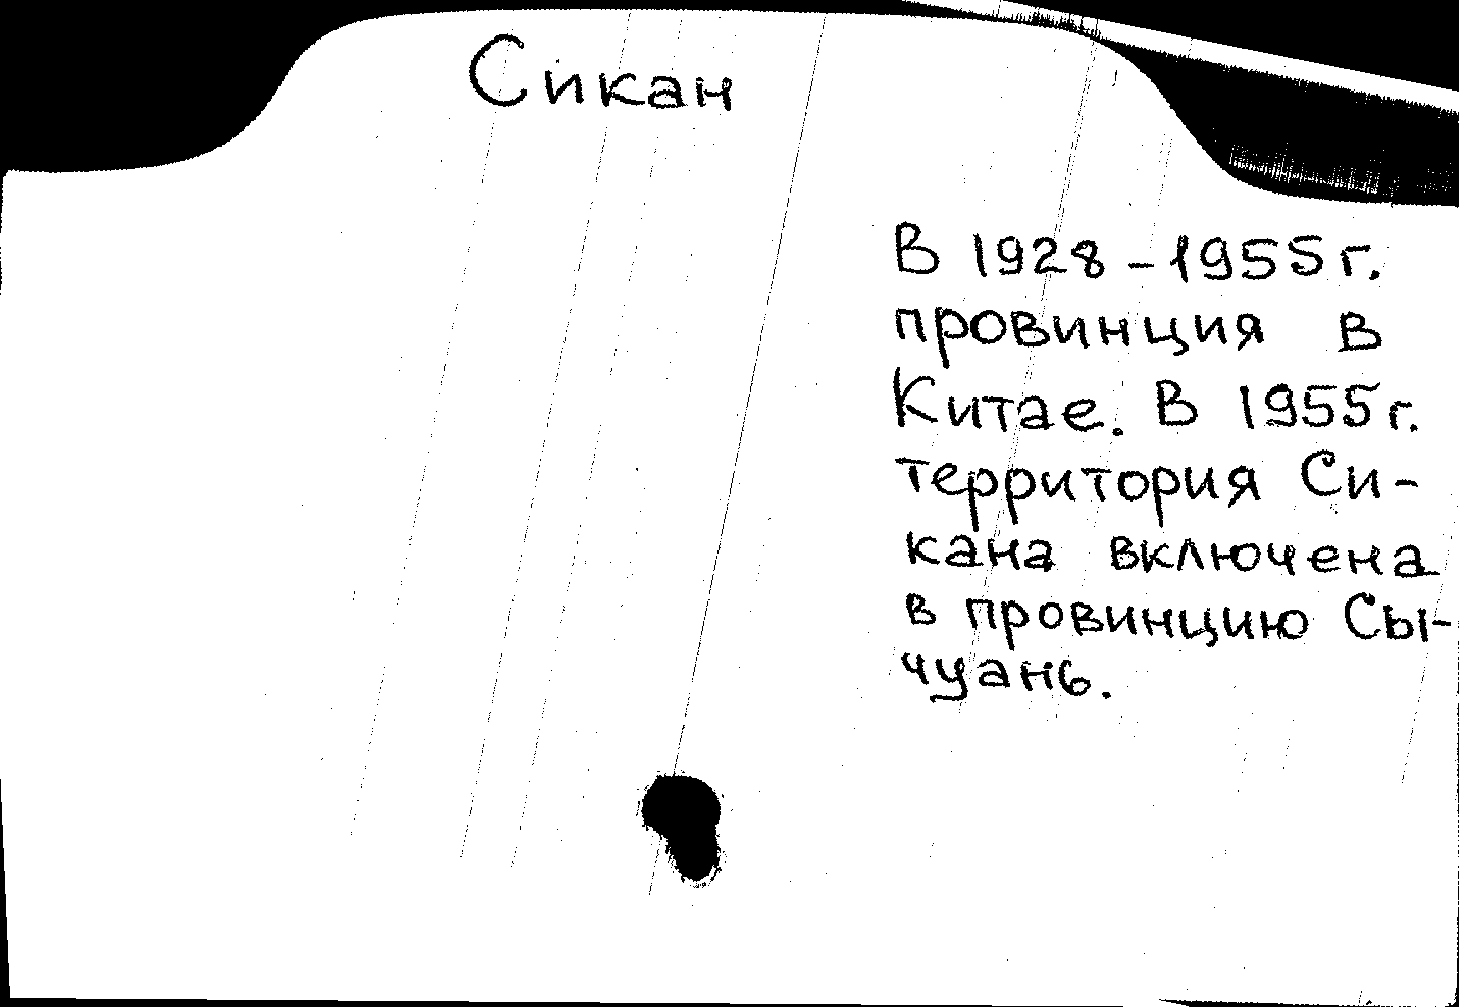 Сикан
В 1928-1955 г.
провинция в
Китае. В 1955 г.
территория Си-
кана включена
в провинцию Сы-
чуань.